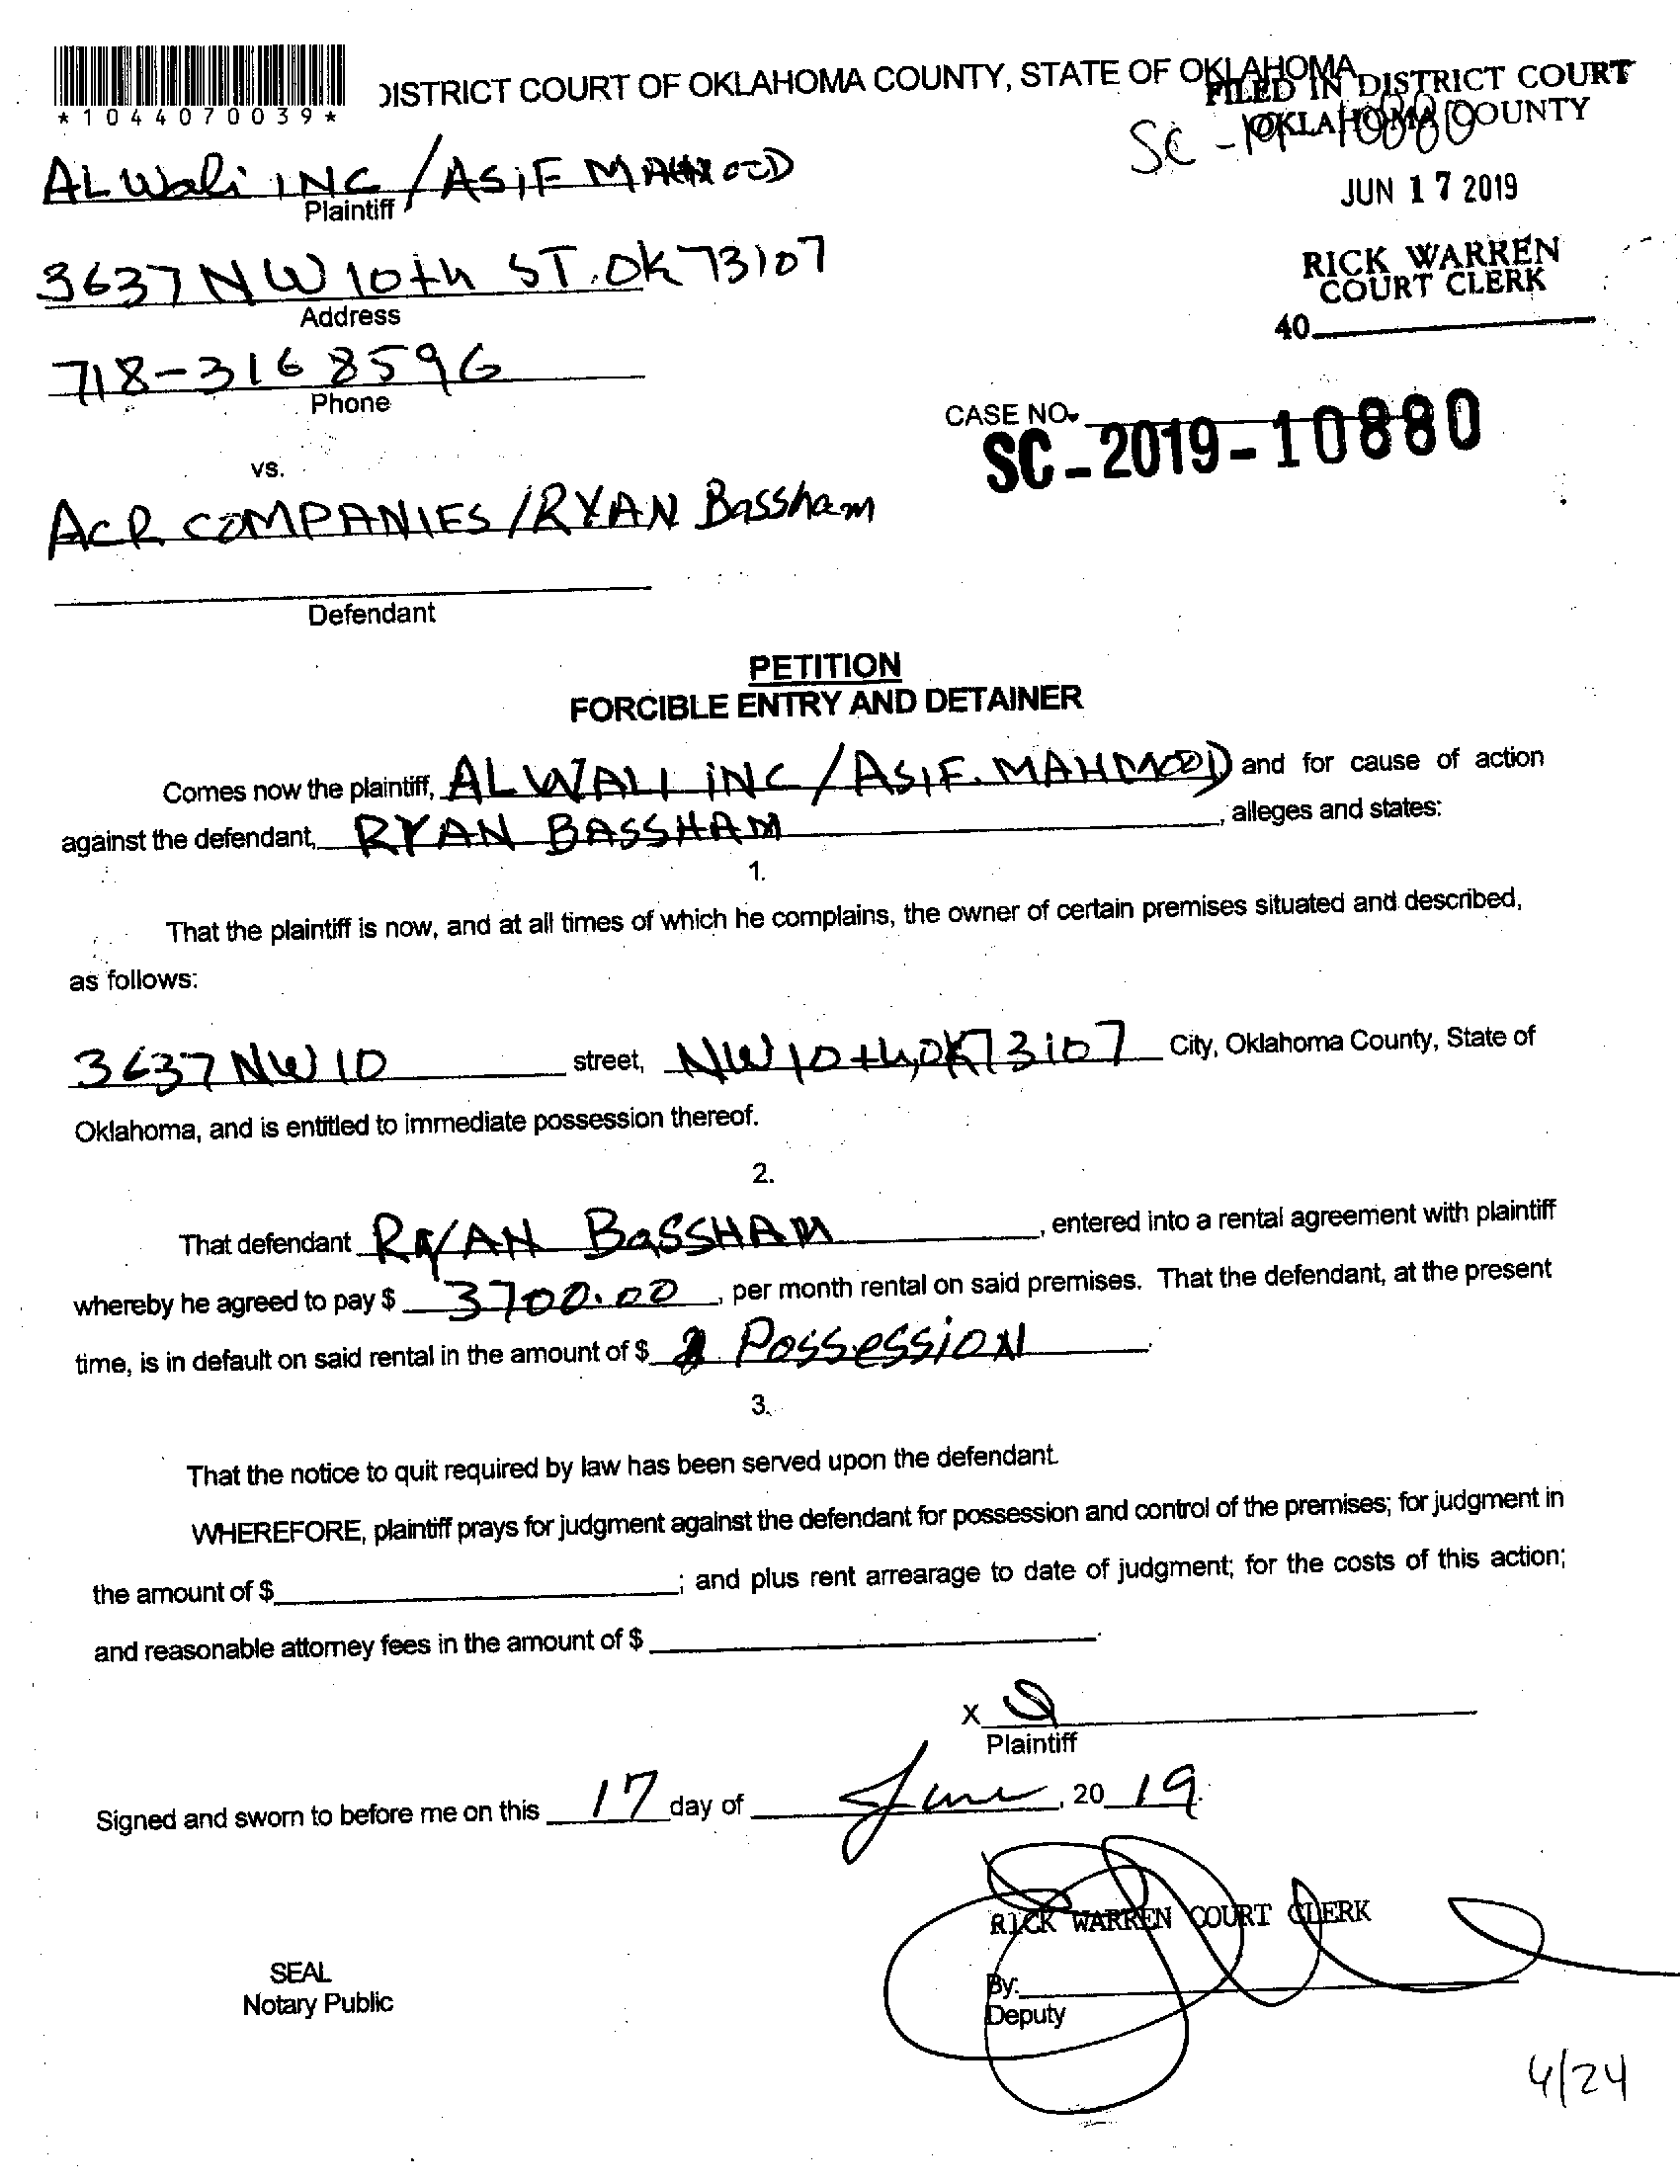 *1044070039*
DISTRICT COURT OF OKLAHOMA COUNTY, STATE OF OKLAHOMA
FILED IN DISTRICT COURT
OKLAHOMA COUNTY
SC-19-10880
JUN 17 2019
RICK WARREN
COURT CLERK
40
ALWali INC / ASIF MAHMOOD
Plaintiff
3637 NW 10th ST. OK 73107
Address
718-316 8596
Phone
CASE NO.
SC-2019-10880
vs.
ACR COMPANIES / RYAN Bassham
Defendant
PETITION
FORCIBLE ENTRY AND DETAINER
Comes now the plaintiff, ALWALI INC / ASIF. MAHMOOD and for cause of action
against the defendant, RYAN BASSHAM, alleges and states:
1.
That the plaintiff is now, and at all times of which he complains, the owner of certain premises situated and described,
as follows:
3637 NW 10 street, NW 10th, OK 73107 City, Oklahoma County, State of
Oklahoma, and is entitled to immediate possession thereof.
2.
That defendant RYAN BASSHAM, entered into a rental agreement with plaintiff
whereby he agreed to pay $ 3700.00, per month rental on said premises. That the defendant, at the present
time, is in default on said rental in the amount of $ Possession.
3.
That the notice to quit required by law has been served upon the defendant.
WHEREFORE, plaintiff prays for judgment against the defendant for possession and control of the premises; for judgment in
the amount of $; and plus rent arrearage to date of judgment; for the costs of this action;
and reasonable attorney fees in the amount of $.
X
Plaintiff
Signed and sworn to before me on this 17 day of June, 20 19.
RICK WARREN COURT CLERK
SEAL
Notary Public
By:
Deputy
4/24